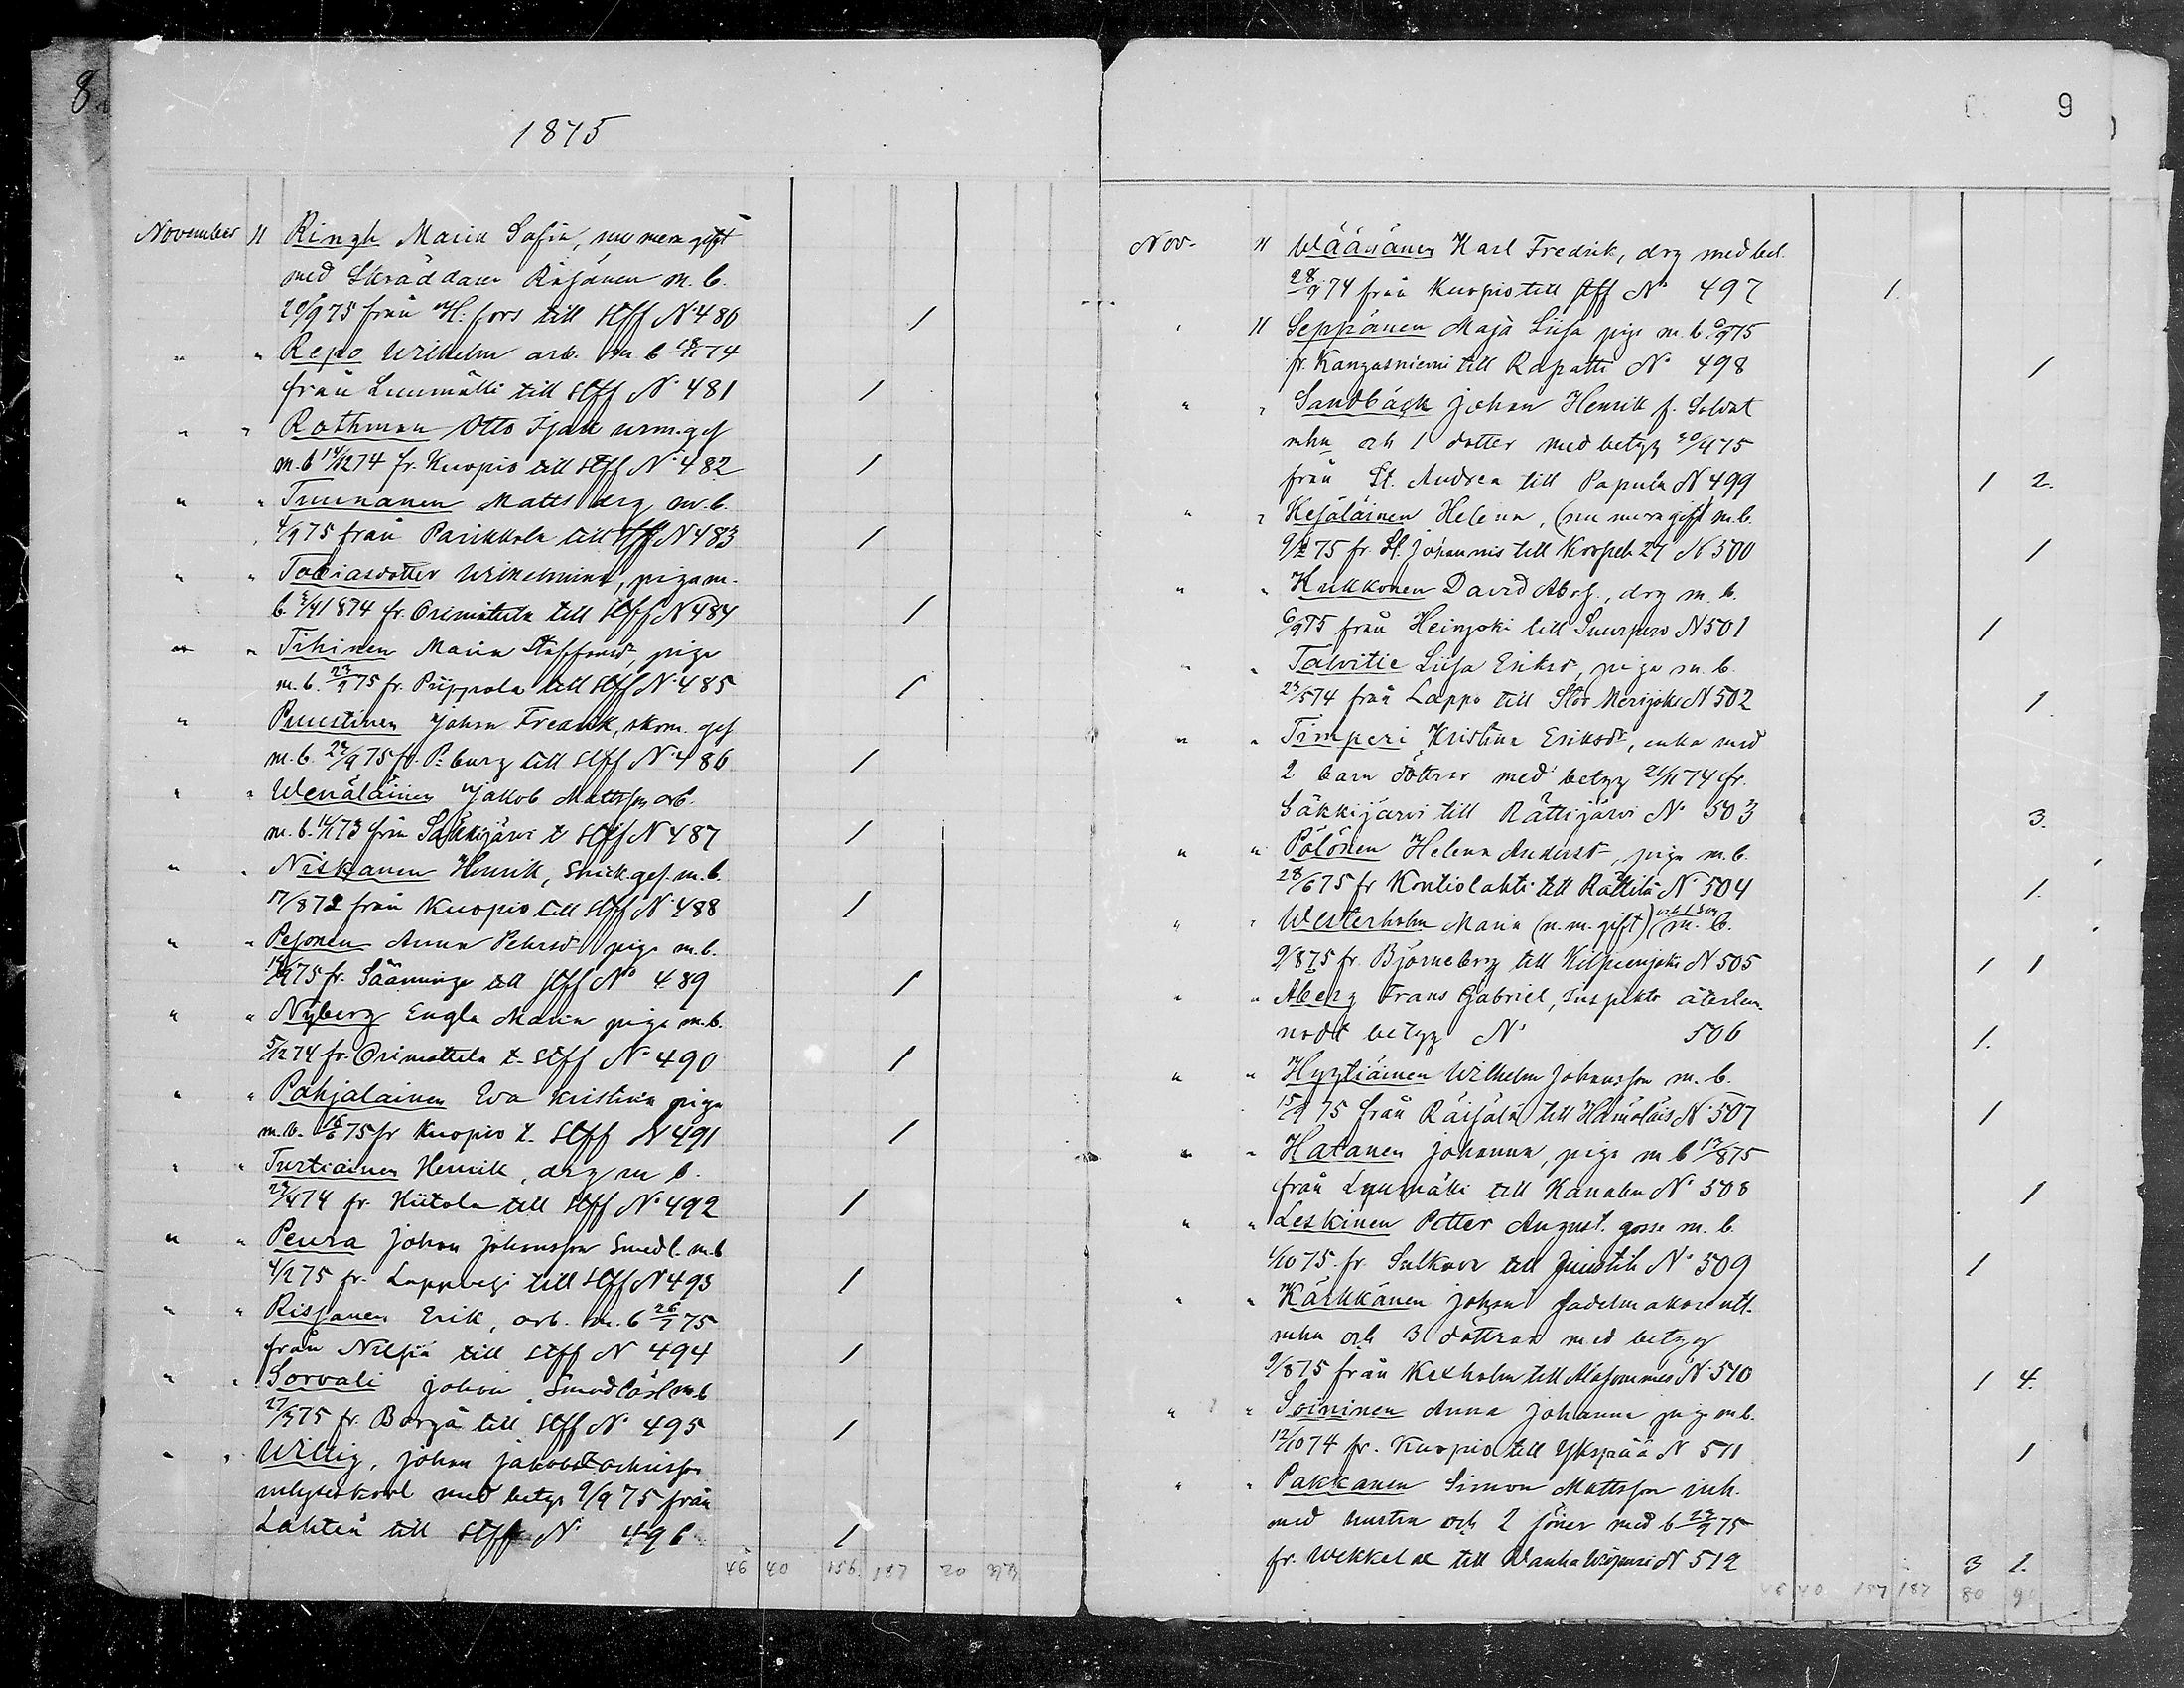 8.
1875
November 11 Ringh Maria Sofia, nu mera gift
med Skräddaren Räsänen m. b.
20/9 75 från H:fors till Stff N° 480 1
" " Repo Wilhelm arb. m b 18/11 74
från Luumäki till Stff N° 481 1
" " Rothman Otto Isak urm. ges
m. b 14/12 74 fr. Kuopio till Stff N° 482 1
" " Tuunanen Matts drg m. b.
4/9 75 från Parikkala till Stff N 483 1
" " Tobiasdotter Wilhelmina, piga m.
b. 3/4 1874 fr. Orimattila till Stff N 484 1
" " Tihinen Maria Staffansdr, piga
m. b. 23/7 75 fr. Piippola till Stff N° 485 1
" Puustinen Johan Fredrik, skom. ges
m. b. 22/9 75 fr. P:burg till Stff N° 486 1
" " Wenäläinen Jakob Mattsson arb.
m. b. 11/1 73 från Säkkijärvi t Stff N 487 1
" " Niskanen Henrik, Snick. ges. m. b.
17/8 72 från Kuopio till Stff N° 488 1
" " Pesonen Anna Pehrsdr piga m. b.
19/9 75 fr. Sääminge till Stff N° 489 1
" " Nyberg Engla Maria piga m. b.
5/12 74 fr. Orimattila t. Stff N° 490 1
" " Pohjalainen Eva Kristina piga
m. b. 16/6 75 fr Kuopio t. Stff N 491 1
" " Turtiainen Henrik, drg m b.
24/4 74 fr. Hiitola till Stff N° 492 1
" " Peura Johan Johansson Smedl. m. b
4/2 75 fr. Lappvesi till Stff N 493 1
" " Rissanen Erik, arb. m. b 26/7 75
från Nilsiä till Stff N 494 1
" " Sorvali Johan Smedlärl m. b
27/9 75 fr. Borgå till Stff N° 495 1
" " Willig, Johan Jakob
med betyg 9/9 75 från
Lahtis till Stff N° 496 1
46 40 156. 187 20
9
Nov. 11 Wäänänen Karl Fredrik, drg med bet.
28/9 74 från Kuopio till Stff N° 497 1.
" 11 Seppänen Maja Liisa piga m. b. 9/9 75
fr. Kangasniemi till Rapatti N° 498 1
" " Sandbäck Johan Henrik f. Soldat
mhu och 1 dotter med betyg 20/4 75
från St. Andrea till Papula N 499 1 2.
" " Kejäläinen Helena, (nu mera gift m. b.
9/2 75 fr. St. Johannis till Korpela 27 N 500 1
" " Kukkonen David Abrs., drg m. b.
6/9 75 från Heinjoki till Suurpero N 501 1
" " Talvitie Liisa Eriksd, piga m. b.
23/5 74 från Lappo till Stor Merijoki N 502 1
" " Timperi Kristina Eriksdr, enka med
2 barn döttrar med betyg 21/11 74 fr.
Säkkijärvi till Rättijärvi N° 503 3.
" " Pölönen Helena Andersdr, piga m. b.
28/6 75 fr Kontiolahti till Rättilä N° 504 1.
" " Westerholm Maria (n. m. gift) och 1 son m. b.
9/8 75 fr. Björneborg till Kilpeenjoki N 505 1 1
" " Åberg Frans Gabriel, Inspektor återläm
nadt betyg N° 506 1.
" " Hyytiäinen Wilhelm Johansson m. b.
15/9 75 från Räisälä till Hämäläis N° 507 1
" " Hatanen Johanna, piga m b 17/8 75
från Luumäki till Kanalen N° 508 1
" " Leskinen Petter August. gosse m. b.
1/10 75. fr. Sulkava till Juustila N° 509 1
" " Kärkkänen Johan Sadelmakare utl.
mhu och 3 döttrar med betyg
9/8 75 från Kexholm till Alasommes N° 510 1 4.
" " Soininen Anna Johanna piga m b.
12/10 74 fr. Kuopio till Ykspää N 511 1
" " Pakkanen Simon Mattsson inh.
med hustru och 2 söner med b 22/9 75
fr. Wekkelax till Wanha Wiipuri N 512 3 1.
46 40 157 187 80 9